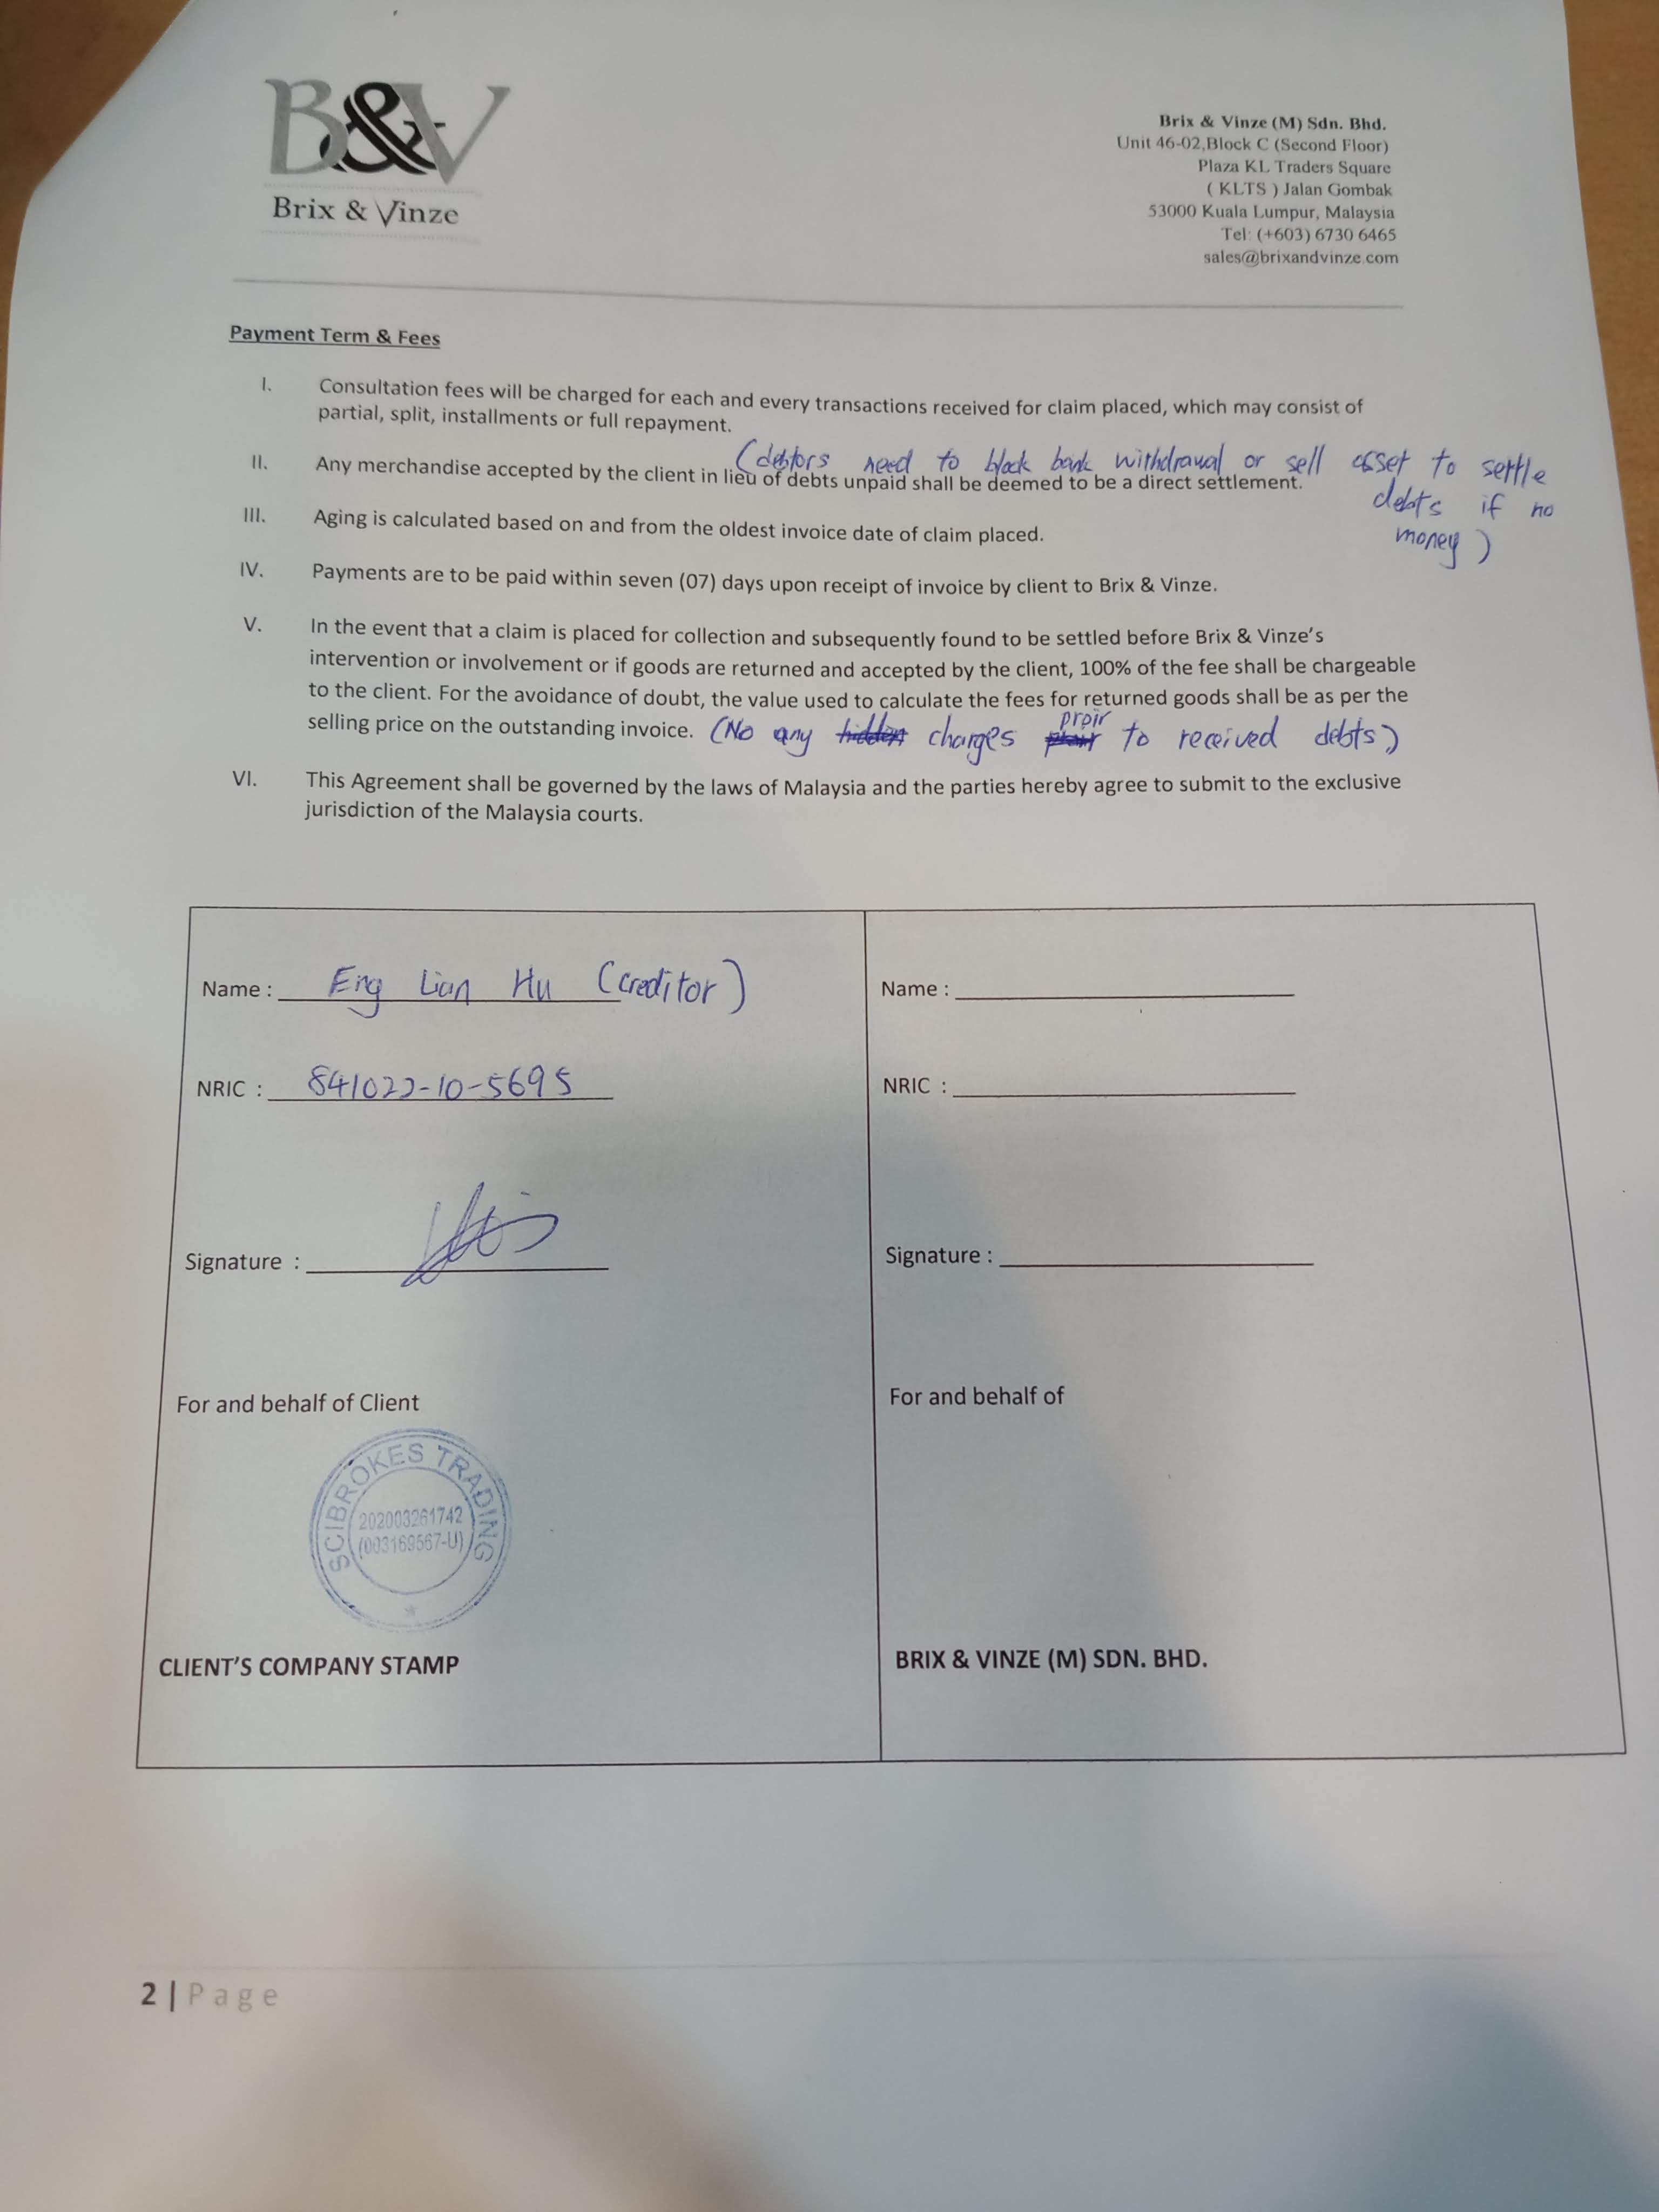 B&V
Brix & Vinze
Brix & Vinze (M) Sdn. Bhd.
Unit 46-02,Block C (Second Floor)
Plaza KL Traders Square
( KLTS ) Jalan Gombak
53000 Kuala Lumpur, Malaysia
Tel: (+603) 6730 6465
sales@brixandvinze.com
Payment Term & Fees
I. Consultation fees will be charged for each and every transactions received for claim placed, which may consist of
partial, split, installments or full repayment.
(debtors need to block bank withdrawal or sell asset to settle
debts if no
money)
II. Any merchandise accepted by the client in lieu of debts unpaid shall be deemed to be a direct settlement.
III. Aging is calculated based on and from the oldest invoice date of claim placed.
IV. Payments are to be paid within seven (07) days upon receipt of invoice by client to Brix & Vinze.
V. In the event that a claim is placed for collection and subsequently found to be settled before Brix & Vinze's
intervention or involvement or if goods are returned and accepted by the client, 100% of the fee shall be chargeable
to the client. For the avoidance of doubt, the value used to calculate the fees for returned goods shall be as per the
selling price on the outstanding invoice. (No any hidden charges proir to received debts)
VI. This Agreement shall be governed by the laws of Malaysia and the parties hereby agree to submit to the exclusive
jurisdiction of the Malaysia courts.
Name : Eng Lian Hu (creditor)
NRIC : 841022-10-5695
Signature :
For and behalf of Client
SCIBROKES TRADING
202003261742
(003169567-U)
CLIENT'S COMPANY STAMP
Name :
NRIC :
Signature :
For and behalf of
BRIX & VINZE (M) SDN. BHD.
2 | Page